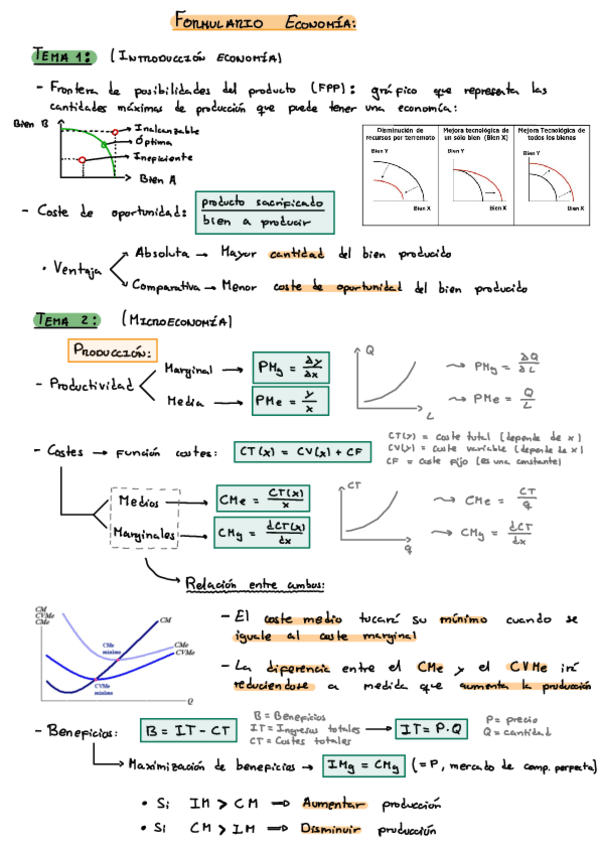 FORMULARIO ECONOMÍA:
TEMA 1: (INTRODUCCIÓN ECONOMÍA)
- Frontera de posibilidades del producto (FPP): gráfico que representa las
cantidades máximas de producción que puede tener una economía:
Bien B
Inalcanzable
Óptima
Ineficiente
Bien A
Disminución de recursos por terremoto
Bien Y
Bien X
Mejora tecnológica de un sólo bien (Bien X)
Bien Y
Bien X
Mejora Tecnológica de todos los bienes
Bien Y
Bien X
- Coste de oportunidad: producto sacrificado / bien a producir
• Ventaja
Absoluta → Mayor cantidad del bien producido
Comparativa → Menor coste de oportunidad del bien producido
TEMA 2: (MICROECONOMÍA)
PRODUCCIÓN:
- Productividad
Marginal → PMg = Δy/Δx
Media → PMe = y/x
Q
L
→ PMg = ΔQ/ΔL
→ PMe = Q/L
- Costes → Función costes: CT(x) = CV(x) + CF
CT(x) = coste total (depende de x)
CV(x) = coste variable (depende de x)
CF = coste fijo (es una constante)
Medios → CMe = CT(x)/x
Marginales → CMg = dCT(x)/dx
CT
q
→ CMe = CT/q
→ CMg = dCT/dx
Relación entre ambos:
CM
CVMe
CMe
CM
CMe
CVMe
CMe mínimo
CVMe mínimo
Q
- El coste medio tocará su mínimo cuando se
iguale al coste marginal
- La diferencia entre el CMe y el CVMe irá
reduciéndose a medida que aumenta la producción
- Beneficios: B = IT - CT
B = Beneficios
IT = Ingresos totales
CT = Costes totales
→ IT = P·Q
P = precio
Q = cantidad
Maximización de beneficios → IMg = CMg (= P, mercado de comp. perfecta)
• Si IM > CM ⇒ Aumentar producción
• Si CM > IM ⇒ Disminuir producción